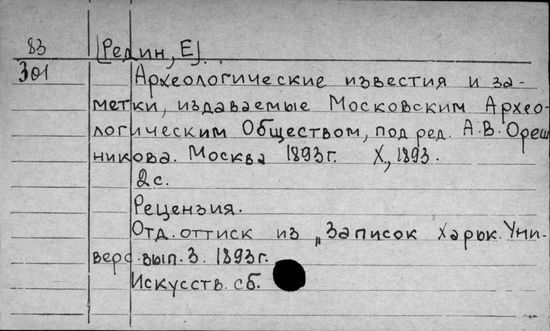 83 [Редин, Е].
301 Археологические известия и за-
метки, издаваемые Московским Архео-
логическим Обществом, под ред. А.В. Ореш
никова. Москва 1893г. X, 1893.
2с.
Рецензия.
Отд. оттиск из „Записок Харьк. Уни-
верс. вып. 3. 1893г.
Искусств. сб.